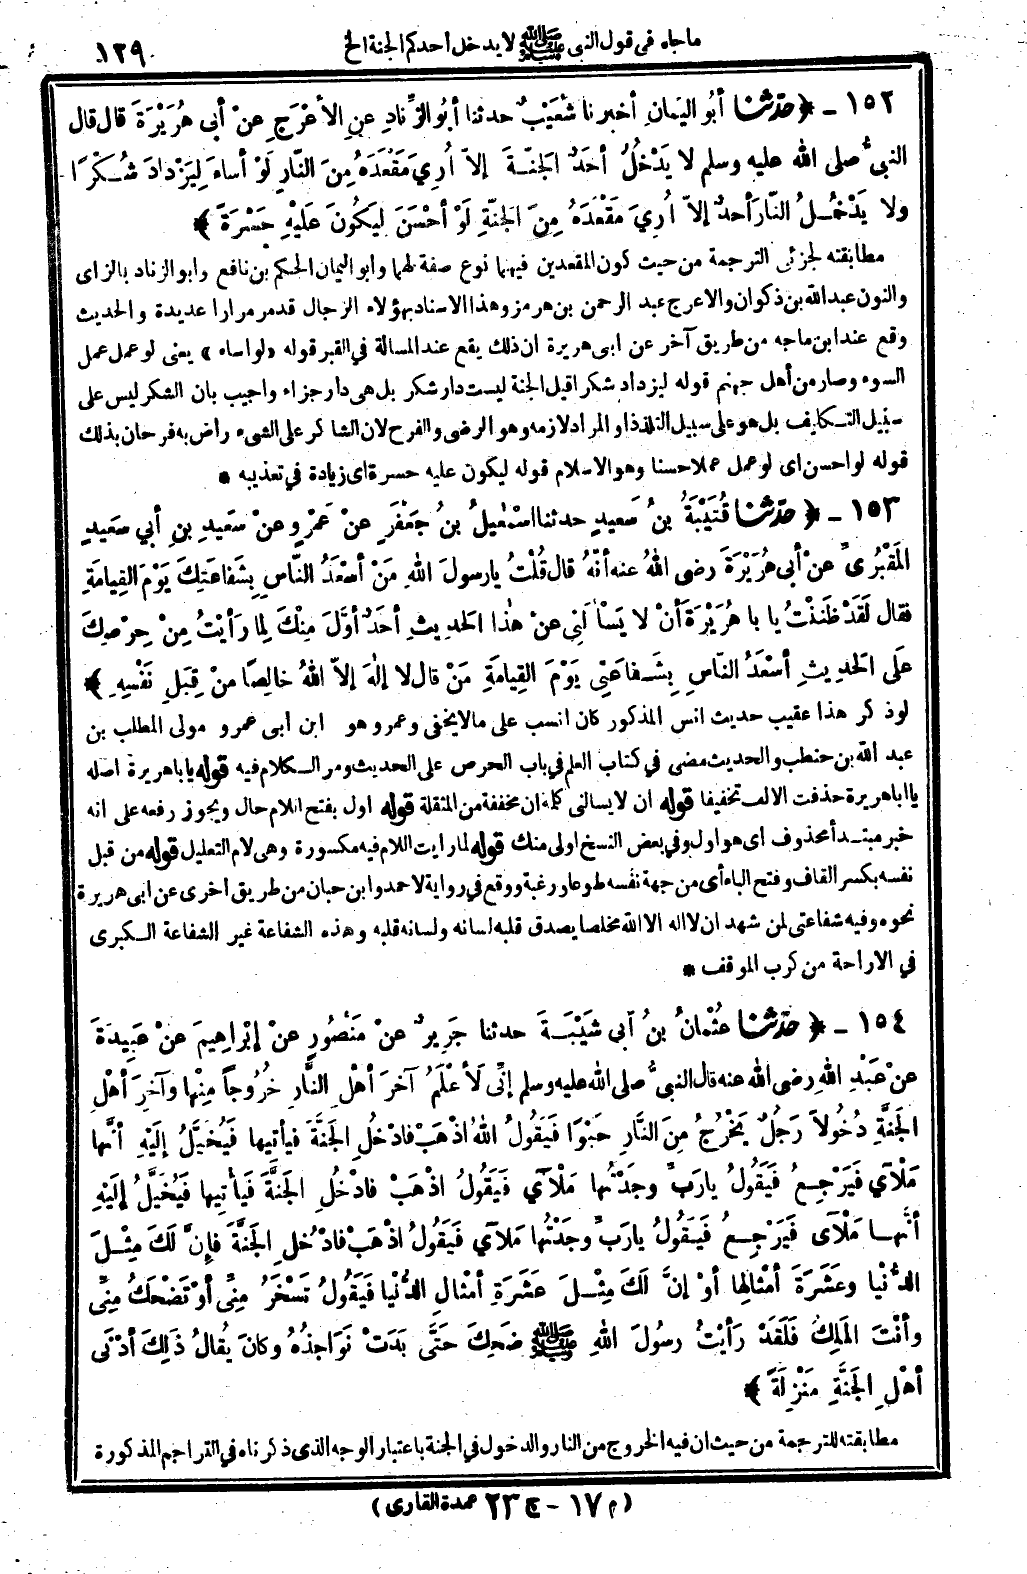 ما جاء في قول النبي ﷺ لا يدخل أحدكم الجنة الخ ١٢٩
١٥٢ - ﴿ حدثنا أبُو اليَمانِ أخبرنا شُعَيْبٌ حدثنا أبُو الزِّنادِ عنِ الأعْرَجِ عنْ أبي هُرَيْرَةَ قال قال
النبيُّ صلى الله عليه وسلم لا يَدْخُلُ أحَدٌ الجَنّةَ إلاّ أُرِيَ مَقْعَدَهُ مِنَ النّارِ لَوْ أساءَ لِيَزْدادَ شُكْرًا
ولا يَدْخُلُ النّارَ أحدٌ إلاّ أُرِيَ مَقْعَدَهُ مِنَ الجَنّةِ لَوْ أحْسَنَ لِيَكُونَ عَلَيْهِ حَسْرَةً ﴾
مطابقته لجزئي الترجمة من حيث كون المقعدين فيهما نوع صفة لهما وابو اليمان الحكم بن نافع وابو الزناد بالزاى
والنون عبد الله بن ذكوان والاعرج عبد الرحمن بن هرمز وهذا الاسناد بهؤلاء الرجال قد مر مرارا عديدة والحديث
وقع عند ابن ماجه من طريق آخر عن ابى هريرة ان ذلك يقع عند المسالة في القبر قوله «لو اساء» يعنى لو عمل عمل
السوء وصار من أهل جهنم قوله ليزداد شكرا قيل الجنة ليست دار شكر بل هى دار جزاء واجيب بان الشكر ليس على
سبيل التكليف بل هو على سبيل التلذذ او المراد لازمه وهو الرضى والفرح لان الشاكر على الشىء راض به فرحان بذلك
قوله لو احسن اى لو عمل عملا حسنا وهو الاسلام قوله ليكون عليه حسرة اى زيادة في تعذيبه *
١٥٣ - ﴿ حدثنا قُتَيْبَةُ بنُ سَعيدٍ حدثنا اسْمٰعِيلُ بنُ جَعْفَرٍ عنْ عَمْرٍو عنْ سَعِيدِ بنِ أبي سَعِيدٍ
المَقْبُرِيِّ عنْ أبي هُرَيْرَةَ رضى اللهُ عنه أنّهُ قال قُلْتُ يا رسولَ اللهِ مَنْ أسْعَدُ النّاسِ بِشَفاعَتِكَ يَوْمَ القِيامَةِ
فقال لَقَدْ ظَنَنْتُ يا با هُرَيْرَةَ أنْ لا يَسْألَنِي عنْ هٰذا الحَدِيثِ أحَدٌ أوَّلَ مِنْكَ لِما رَأيْتُ مِنْ حِرْصِكَ
علَى الحَدِيثِ أسْعَدُ النّاسِ بِشَفاعَتِي يَوْمَ القِيامَةِ مَنْ قال لا إلٰهَ إلاّ اللهُ خالِصًا منْ قِبَلِ نَفْسِهِ ﴾
لو ذكر هذا عقيب حديث انس المذكور كان انسب على ما لا يخفى وعمرو هو ابن ابى عمرو مولى المطلب بن
عبد الله بن حنطب والحديث مضى في كتاب العلم في باب الحرص على الحديث ومر الكلام فيه قوله يا با هريرة اصله
يا ابا هريرة حذفت الالف تخفيفا قوله ان لا يسالنى كلمة ان مخففة من المثقلة قوله اول بفتح اللام حال ويجوز رفعه على انه
خبر مبتدأ محذوف اى هو اول وفي بعض النسخ اولى منك قوله لما رايت اللام فيه مكسورة وهى لام التعليل قوله من قبل
نفسه بكسر القاف وفتح الباء أى من جهة نفسه طوعا ورغبة ووقع في رواية لاحمد وابن حبان من طريق اخرى عن ابى هريرة
نحوه وفيه شفاعتى لمن شهد ان لا اله الا الله مخلصا يصدق قلبه لسانه ولسانه قلبه وهذه الشفاعة غير الشفاعة الكبرى
في الاراحة من كرب الموقف *
١٥٤ - ﴿ حدثنا عُثْمانُ بنُ أبي شَيْبَةَ حدثنا جَرِيرٌ عنْ مَنْصُورٍ عنْ إبْراهِيمَ عنْ عَبِيدَةَ
عنْ عَبْدِ اللهِ رضى الله عنه قال النبيُّ صلى الله عليه وسلم إنِّي لَأَعْلَمُ آخرَ أهْلِ النَّارِ خُرُوجاً مِنْها وآخِرَ أهْلِ
الجَنّةِ دُخُولاً رَجُلٌ يَخْرُجُ مِنَ النّارِ حَبْوًا فَيَقُولُ اللهُ اذْهَبْ فادْخُلِ الجَنَّةَ فيأتِيها فَيُخَيَّلُ إلَيْهِ أنّها
مَلْآى فَيَرْجِعُ فَيَقُولُ يارَبِّ وجَدْتُها مَلْآى فَيَقُولُ اذْهَبْ فادْخُلِ الجَنَّةَ فَيأْتِيها فَيُخَيَّلُ إلَيْهِ
أنَّها مَلْآى فَيَرْجِعُ فَيَقُولُ يارَبِّ وجَدْتُها مَلآى فَيَقُولُ اذْهَبْ فادْخُلِ الجَنّةَ فإنَّ لَكَ مِثْلَ
الدُّنْيا وعَشَرَةَ أمْثالِها أوْ إنَّ لَكَ مِثْلَ عَشَرَةِ أمْثالِ الدُّنْيا فَيَقُولُ تَسْخَرُ مِنِّي أوْ تَضْحَكُ مِنِّي
وأنْتَ المَلِكُ فَلَقَدْ رَأيْتُ رسولَ اللهِ ﷺ ضَحِكَ حَتَّى بَدَتْ نَوَاجِذُهُ وكانَ يُقالُ ذَلِكَ أدْنَى
أهْلِ الجَنَّةِ مَنْزِلَةً ﴾
مطابقته للترجمة من حيث ان فيه الخروج من النار والدخول في الجنة باعتبار الوجه الذى ذكرناه في التراجم المذكورة
(م ١٧ - ج ٢٣ عمدة القارى)